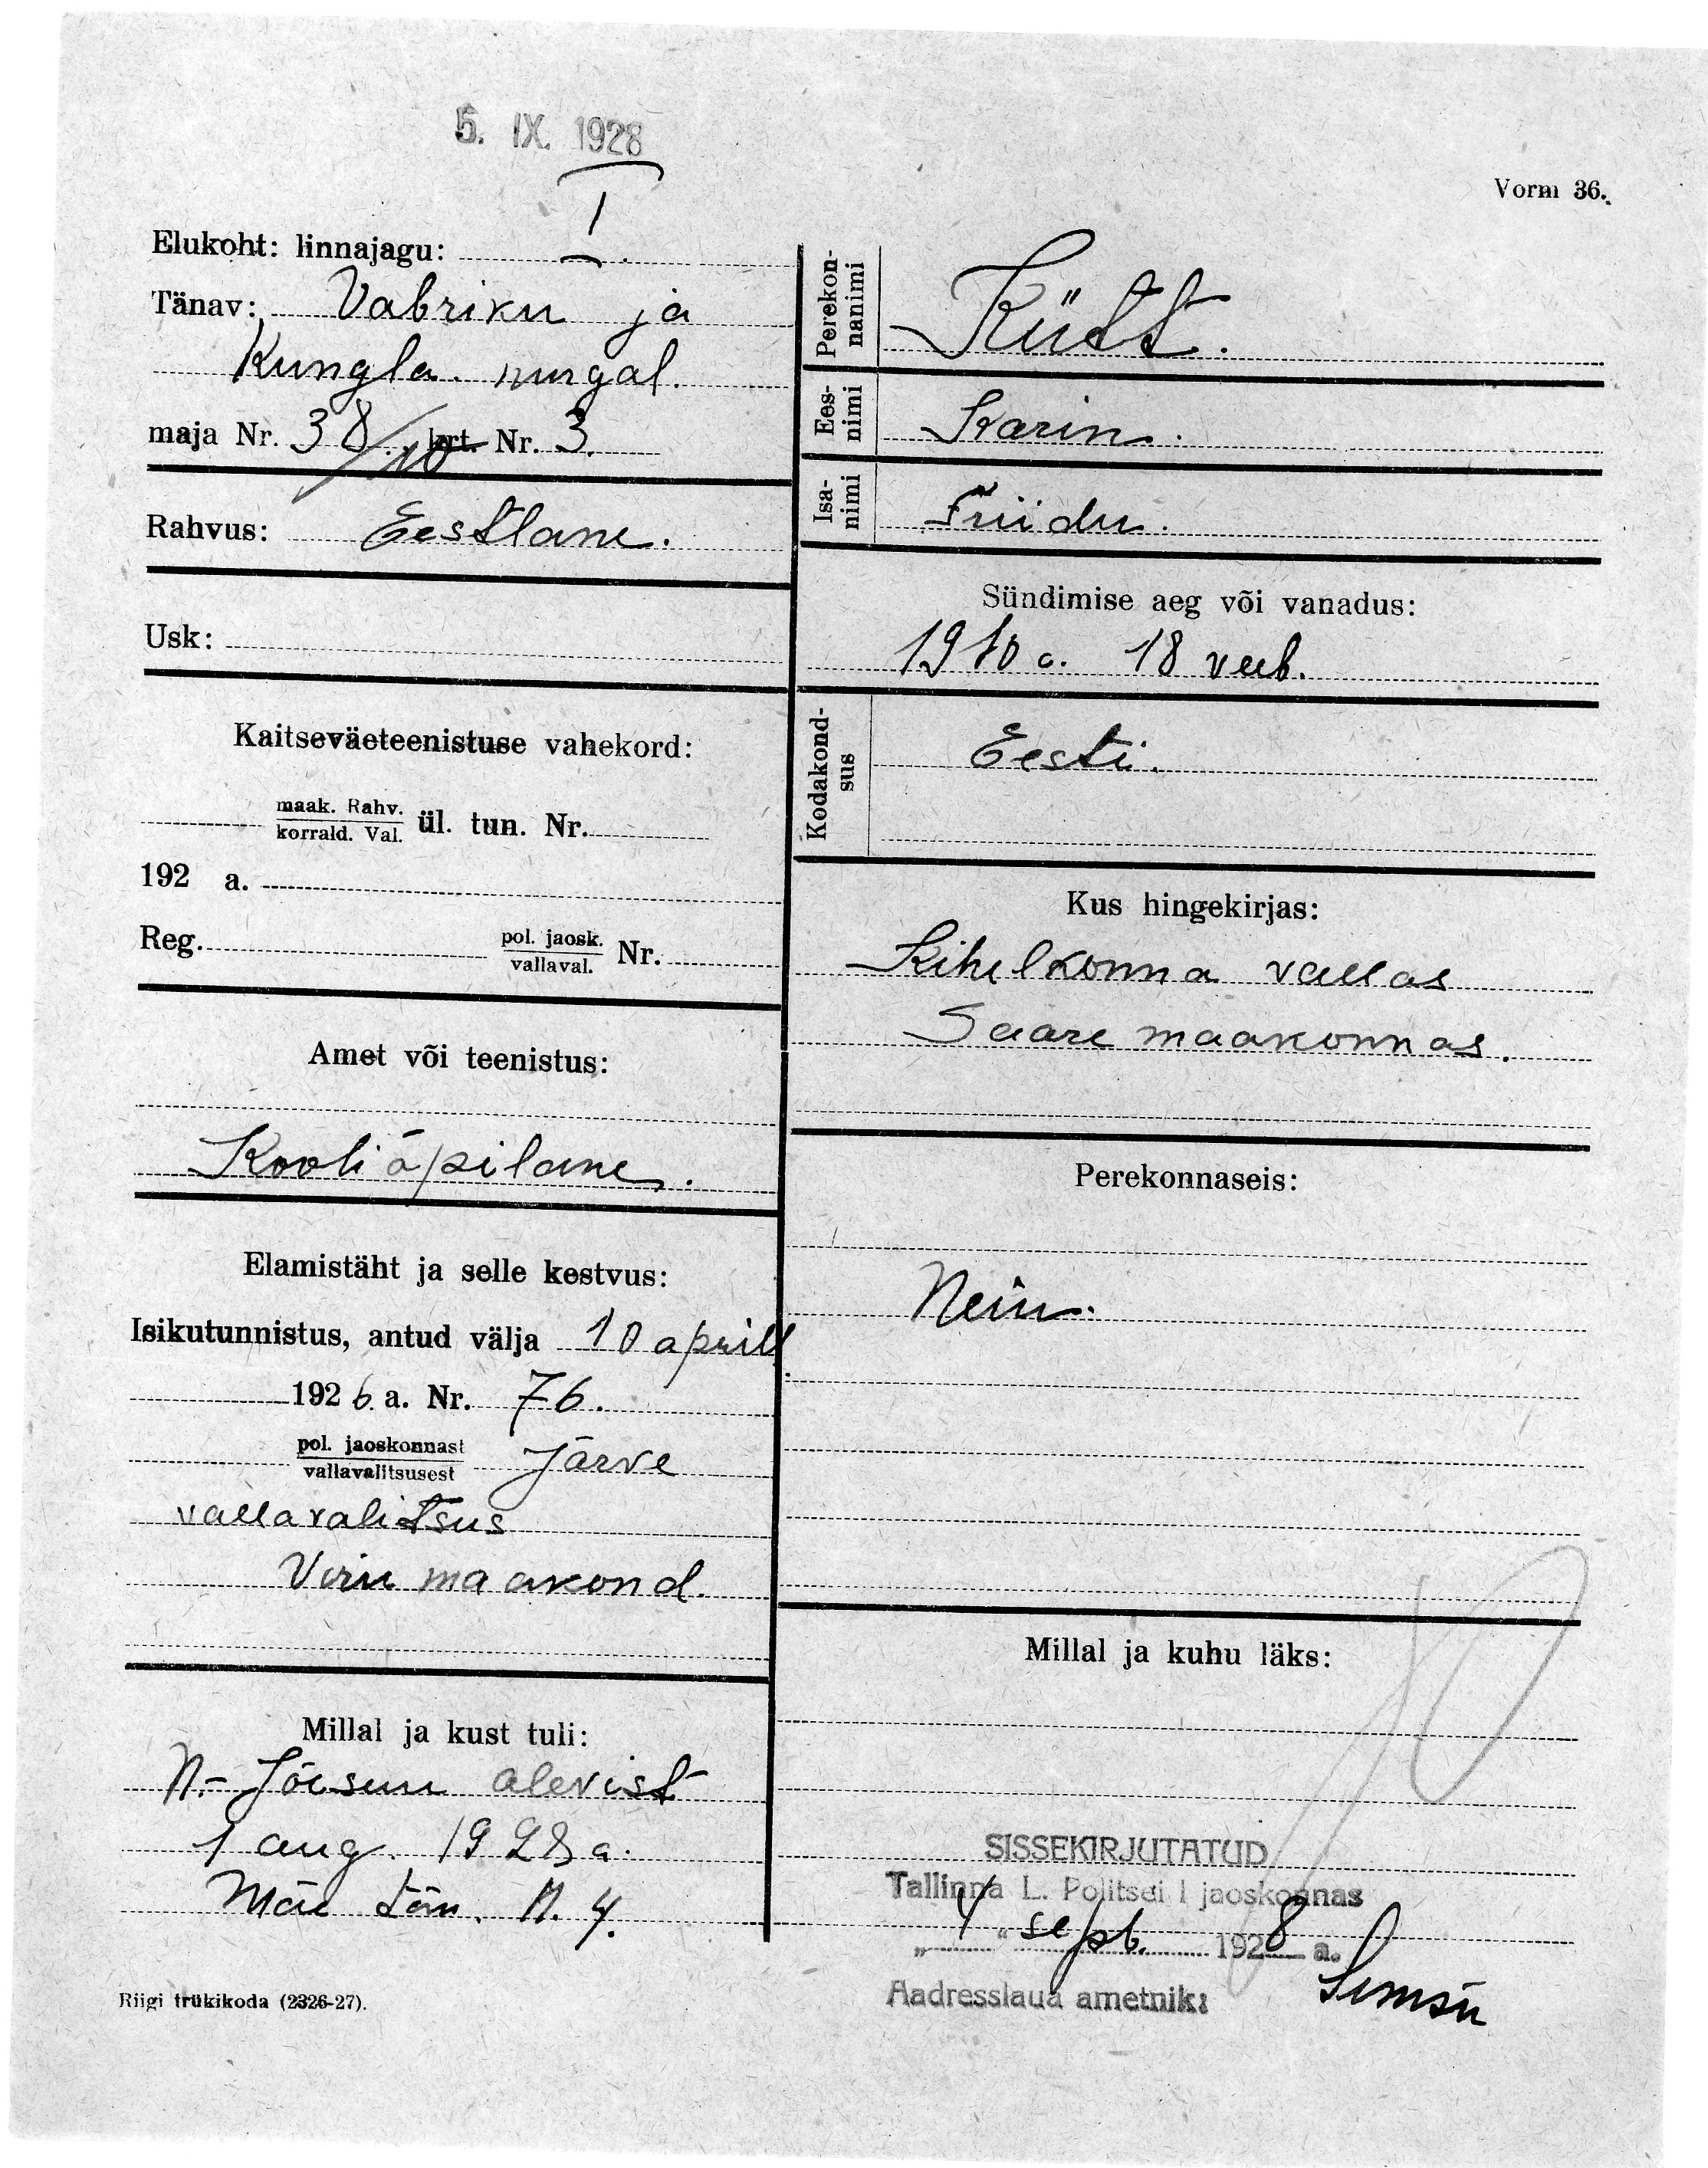 5. IX. 1928
Vorm 36.
Elukoht: linnajagu: I.
Tänav: Vabriku ja
Kungla nurgal.
maja Nr. 38/10 krt. Nr. 3.
Rahvus: Eestlane.
Usk:
Kaitseväeteenistuse vahekord:
maak. Rahv.
korrald. Val. ül. tun. Nr.
192 a.
Reg. pol. jaosk.
vallaval. Nr.
Amet või teenistus:
Kooliõpilane.
Elamistäht ja selle kestvus:
Isikutunnistus, antud välja 10 aprill
1926 a. Nr. 76.
pol. jaoskonnast
vallavalitsusest Järve
vallavalitsus
Viru maakond.
Millal ja kust tuli:
N.-Jõesuu alevist
1 aug. 1928 a.
Mäe tän. N. 4.
Riigi trükikoda (2326-27).
Perekon-
nanimi Kütt.
Ees-
nimi Karin.
Isa-
nimi Friidu.
Sündimise aeg või vanadus:
1910 a. 18 veeb.
Kodakond-
sus Eesti.
Kus hingekirjas:
Kihelkonna vallas
Saare maakonnas.
Perekonnaseis:
Neiu.
Millal ja kuhu läks:
SISSEKIRJUTATUD
Tallinna L. Politsei I jaoskonnas
„4" sept. 1928 a.
Aadresslaua ametnik: